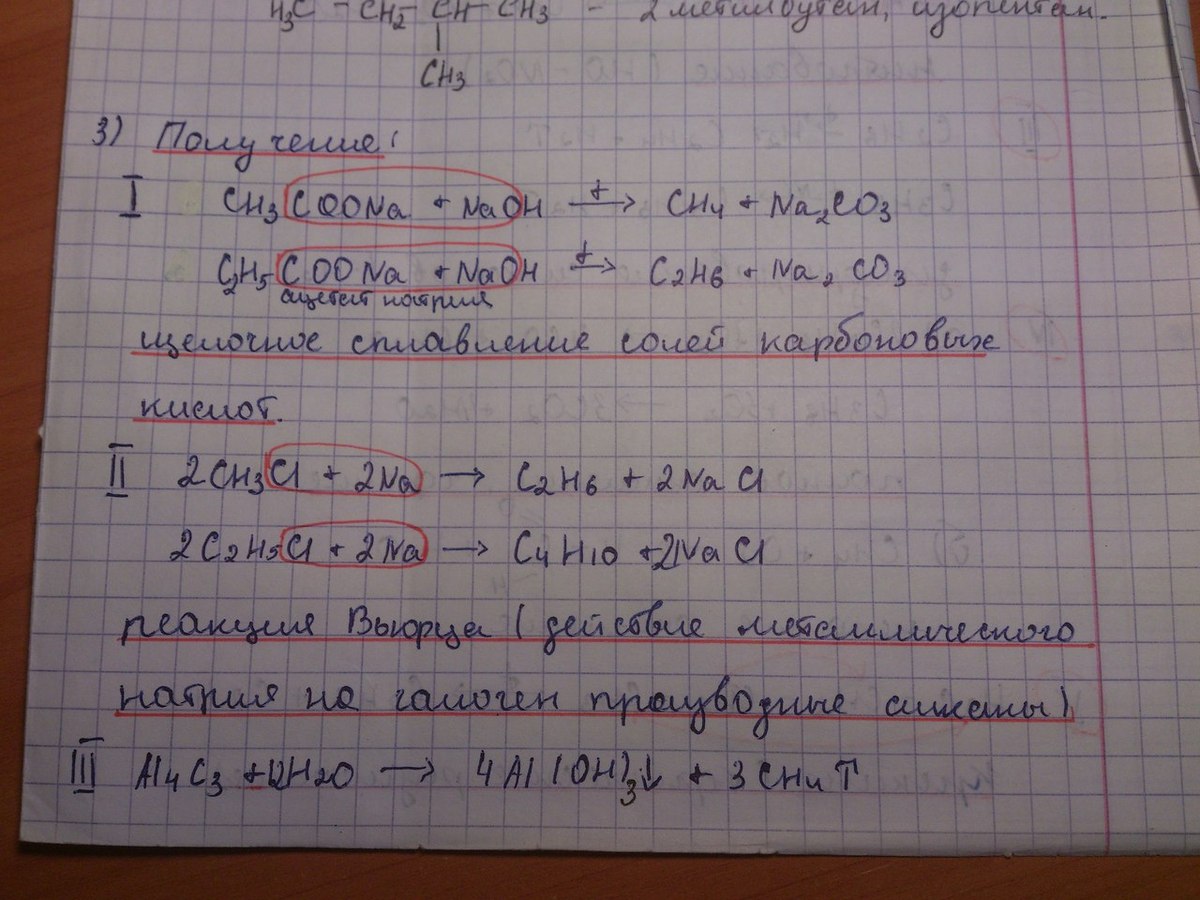 H3C - CH2 - CH - CH3 - 2метилбутан, изопентан.
|
CH3
3) Получение:
I CH3COONa + NaOH t→ CH4 + Na2CO3
C2H5COONa + NaOH t→ C2H6 + Na2CO3
ацетат натрия
щелочное сплавление солей карбоновых
кислот.
II 2CH3Cl + 2Na → C2H6 + 2NaCl
2C2H5Cl + 2Na → C4H10 + 2NaCl
реакция Вюрца (действие металлического
натрия на галоген производные алканы)
III Al4C3 + 12H2O → 4Al(OH)3↓ + 3CH4↑